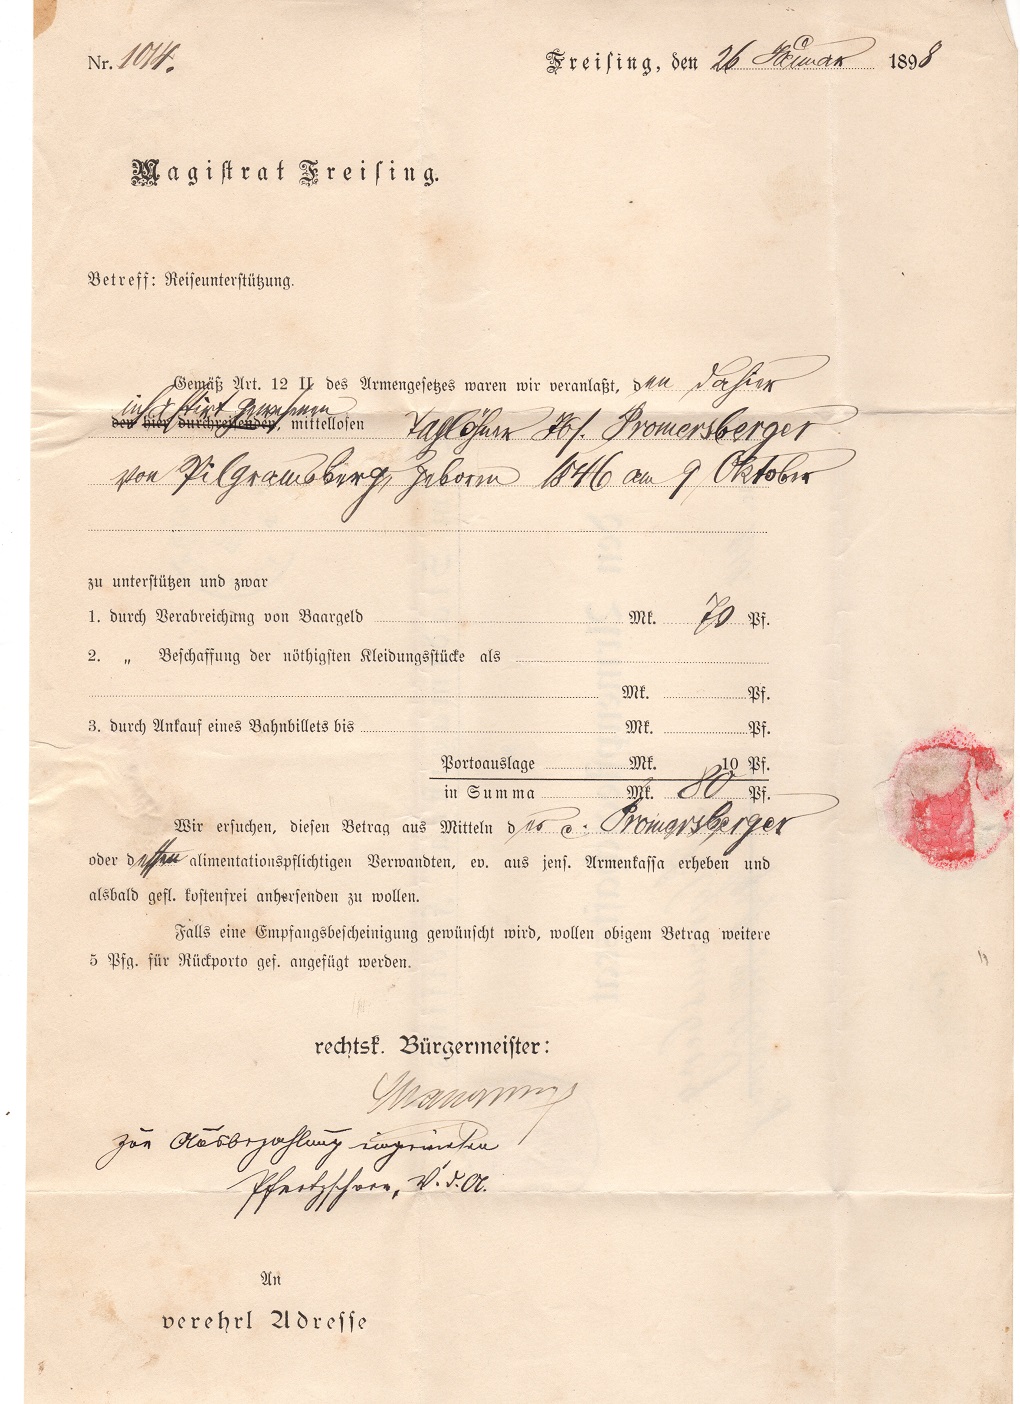 Nr. 1014.
Freising, den 26 Januar 1898
Magistrat Freising.
Betreff: Reiseunterstützung.
Gemäß Art. 12 II des Armengesetzes waren wir veranlaßt, den dahier
gewesenen
den hier durchreisenden, mittellosen Taglöhner Jos. Promersberger
von Pilgramsberg, geboren 1846 am 9 Oktober
zu unterstützen und zwar
1. durch Verabreichung von Baargeld Mk. 70 Pf.
2. „ Beschaffung der nöthigsten Kleidungsstücke als
Mk. Pf.
3. durch Ankauf eines Bahnbillets bis Mk. Pf.
Portoauslage Mk. 10 Pf.
in Summa Mk. 80 Pf.
Wir ersuchen, diesen Betrag aus Mitteln des c. Promersberger
oder dessen alimentationspflichtigen Verwandten, ev. aus jens. Armenkassa erheben und
alsbald gefl. kostenfrei anhersenden zu wollen.
Falls eine Empfangsbescheinigung gewünscht wird, wollen obigem Betrag weitere
5 Pfg. für Rückporto gef. angefügt werden.
rechtsk. Bürgermeister:
zur Ausbezahlung
V. d. A.
An
verehrl Adresse